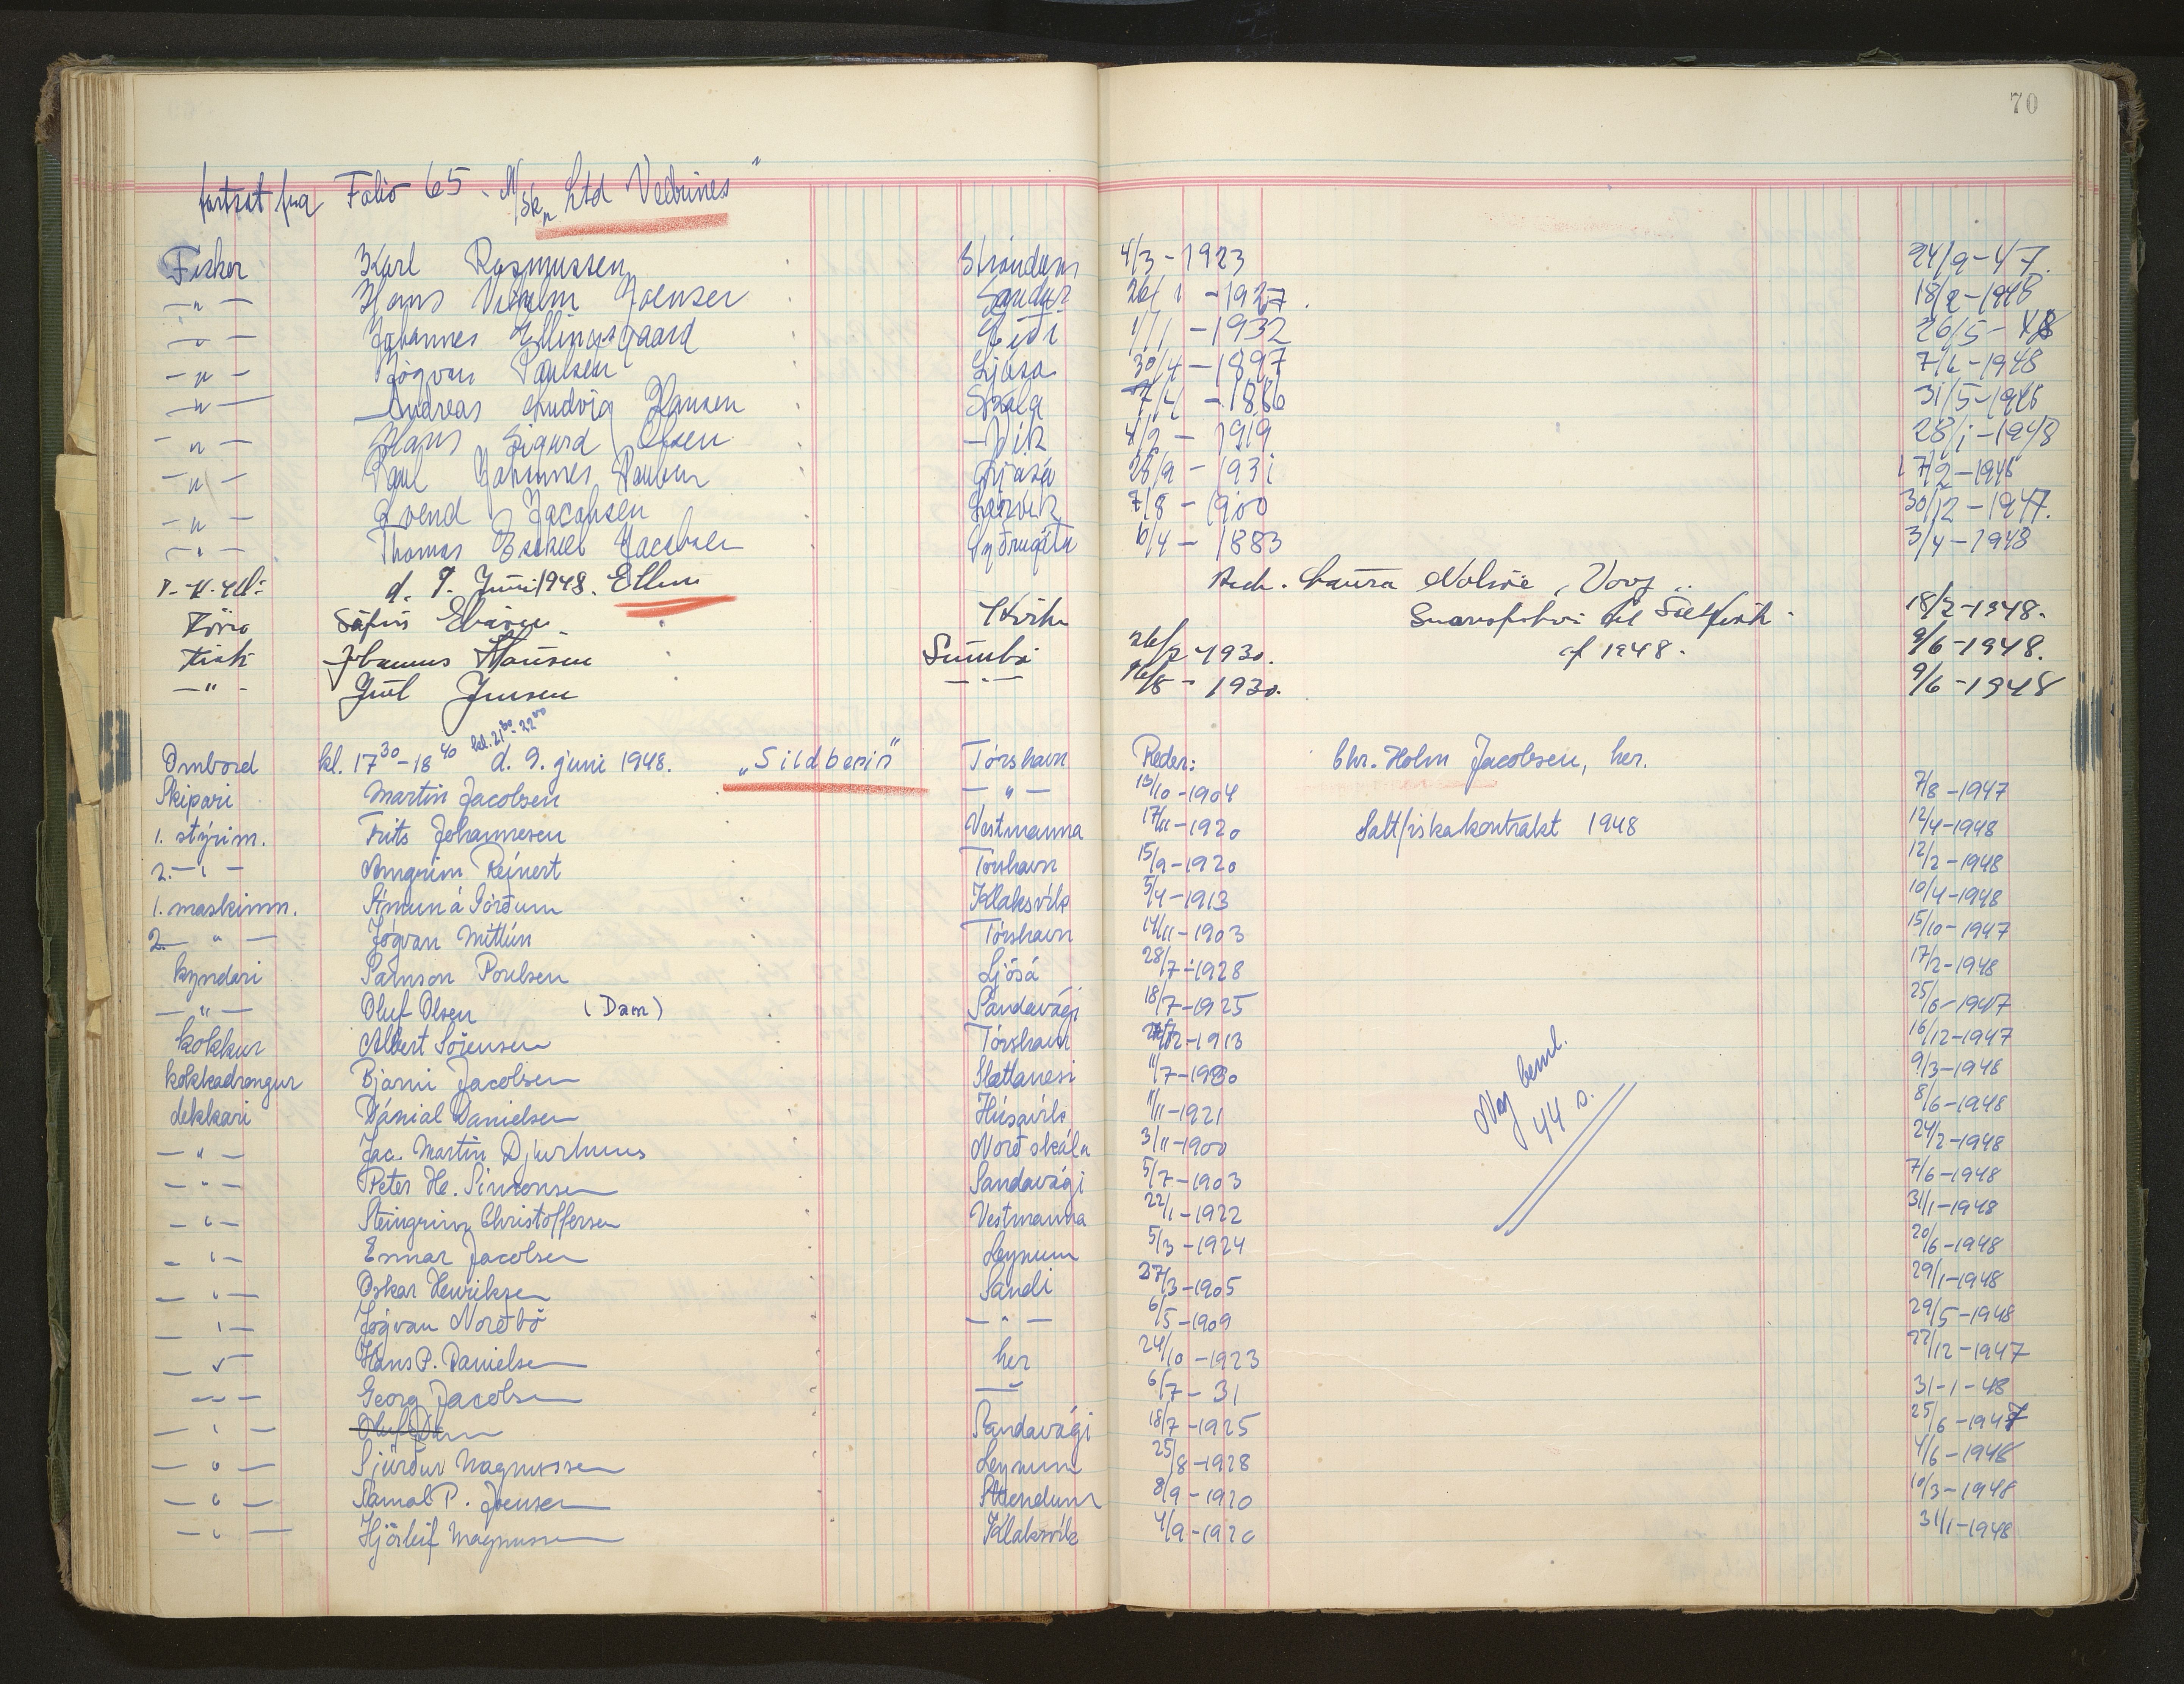 70
fortsat fra Folio 65 - M/Sk Ltd Vedrines"
Fisker Karl Rasmussen Strondum 4/3 - 1923 24/9 - 47.
- " - Hans Vilhelm Joensen Sandur 26/1 - 1927. 18/2 - 1948
- " - Johannes Ellingsgaard Eiði 1/1 - 1932 26/5 - 48
- " - Jógvan Poulsen Ljósá 30/4 - 1897 7/6 - 1948
- " - Andreas Ludvig Hansen Skála 7/4 - 1886 31/5 - 1948
- " - Hans Sigurd Olsen - Vík 4/2 - 1919 28/1 - 1948
- " - Poul Johannes Poulsen Ljósá 28/9 - 1931 17/2 - 1948
- " - Svend J Jacobsen Leirvík 7/8 - 1900 30/12 - 1947.
- " - Thomas Esekiel Jacobsen Syðrugøta 6/4 - 1883 3/4 - 1948
d. 9. Juni 1948. Ellen Red. Laura Nolsøe, Vaag.
Säfus Trön 18/2-1948.
Johannes Hansen Sumbø 26/2 1930. af 1948. 9/6-1948.
- " - Juul Jensen - " - 16/8 - 1930. 9/6-1948
Ombord kl. 17 30 - 18 40 kl. 21 30 - 22 00 d. 9. juni 1948. „Sildberin" Tórshavn Reder: Chr. Holm Jacobsen, her.
Skipari Martin Jacobsen - " - 13/10-1904 7/8-1947
1. stýrim. Frits Johannesen Vestmanna 17/11-1920 Saltfiskakontrakt 1948 12/4-1948
2. - " - Arngrim Rejnert Tórshavn 15/9-1920 12/2-1948
1. maskinm. Ámun á Görðum Klaksvík 5/4-1913 10/4-1948
2. - " - Jógvan Mittún Tórshavn 14/11-1903 15/10-1947
kyndari Samson Poulsen Ljósá 28/7-1928 17/2-1948
- " - Oluf Olsen (Dam) Sandavági 18/7-1925 25/6-1947
kokkur Albert Sörensen Tórshavn /12-1913 16/12-1947
kokkadrongur Bjarni Jacobsen Slættanesi 11/7-1930 9/3-1948
dekkari Dánial Danielsen Húsavík 11/11-1921 8/6-1948
- " - Jac. Martin Djurhuus Norðskála 3/11-1900 24/2-1948
- " - Peter He. Simonsen Sandavági 5/7-1903 7/6-1948
- " - Steingrim Christoffersen Vestmanna 22/1-1922 31/1-1948
- " - Einar Jacobsen Leynum 5/3-1924 20/6-1948
- " - Oskar Henriksen Sandi 27/3-1905 29/1-1948
- " - Jógvan Norðbö - " - 6/5-1909 29/5-1948
- " - Hans P. Danielsen her 24/10-1923 22/12-1947
- " - Georg Jacobsen - " - 6/7-31 31-1-48
- " - Oluf Dam Sandavági 18/7-1925 25/6-1947
- " - Sjúrður Magnussen Leynum 25/8-1928 4/6-1948
- " - Sámal P. Joensen Strendum 8/9-1920 10/3-1948
- " - Hjörleif Magnussen Klaksvík 4/9-1920 31/1-1948
Ny beml.
44 s.